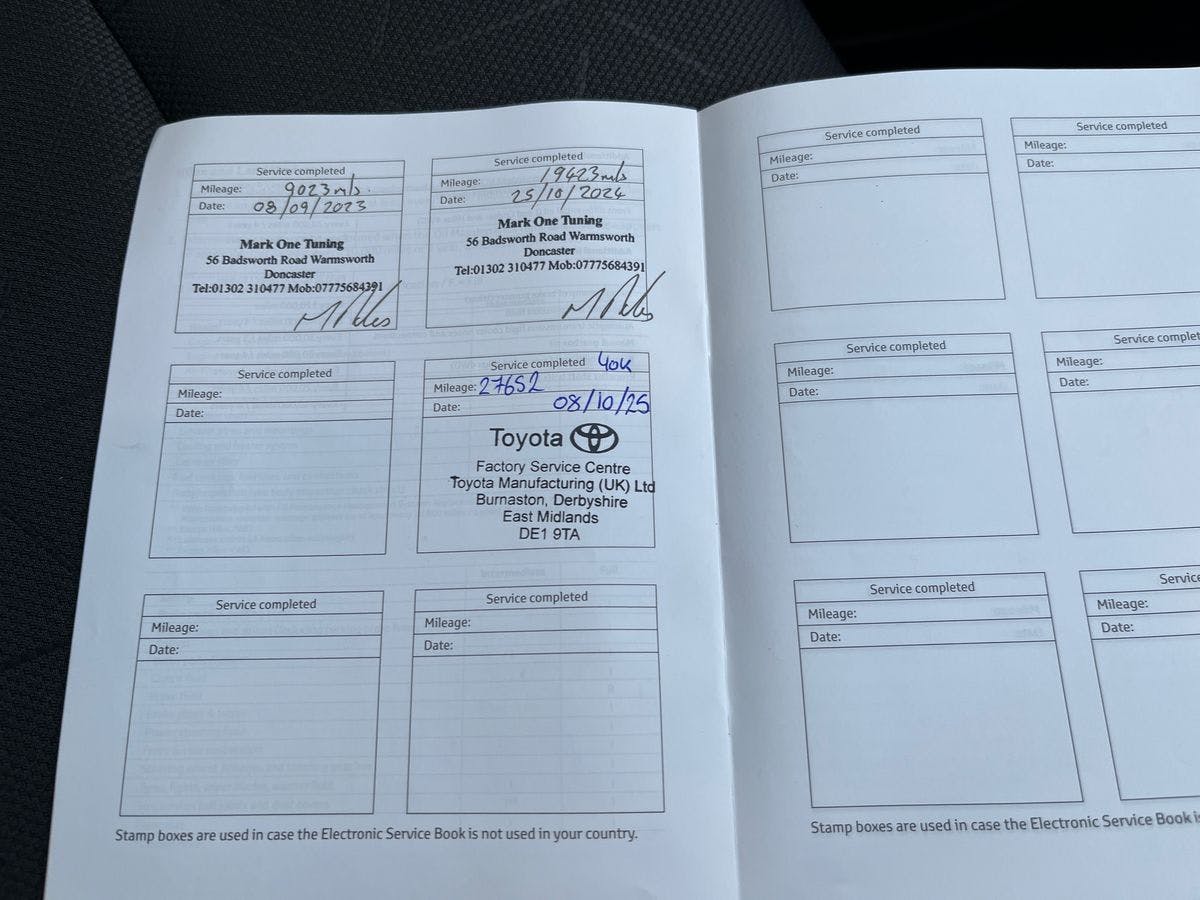 Service completed
Mileage: 9023mls.
Date: 08/09/2023
Mark One Tuning
56 Badsworth Road Warmsworth
Doncaster
Tel:01302 310477 Mob:07775684391
Service completed
Mileage: 19423mls
Date: 25/10/2024
Mark One Tuning
56 Badsworth Road Warmsworth
Doncaster
Tel:01302 310477 Mob:07775684391
Service completed
Mileage:
Date:
Service completed 40K
Mileage: 27652
Date: 08/10/25
Toyota
Factory Service Centre
Toyota Manufacturing (UK) Ltd
Burnaston, Derbyshire
East Midlands
DE1 9TA
Service completed
Mileage:
Date:
Service completed
Mileage:
Date:
Stamp boxes are used in case the Electronic Service Book is not used in your country.
Service completed
Mileage:
Date:
Service completed
Mileage:
Date:
Service completed
Mileage:
Date:
Service complete
Mileage:
Date:
Service completed
Mileage:
Date:
Service
Mileage:
Date:
Stamp boxes are used in case the Electronic Service Book is